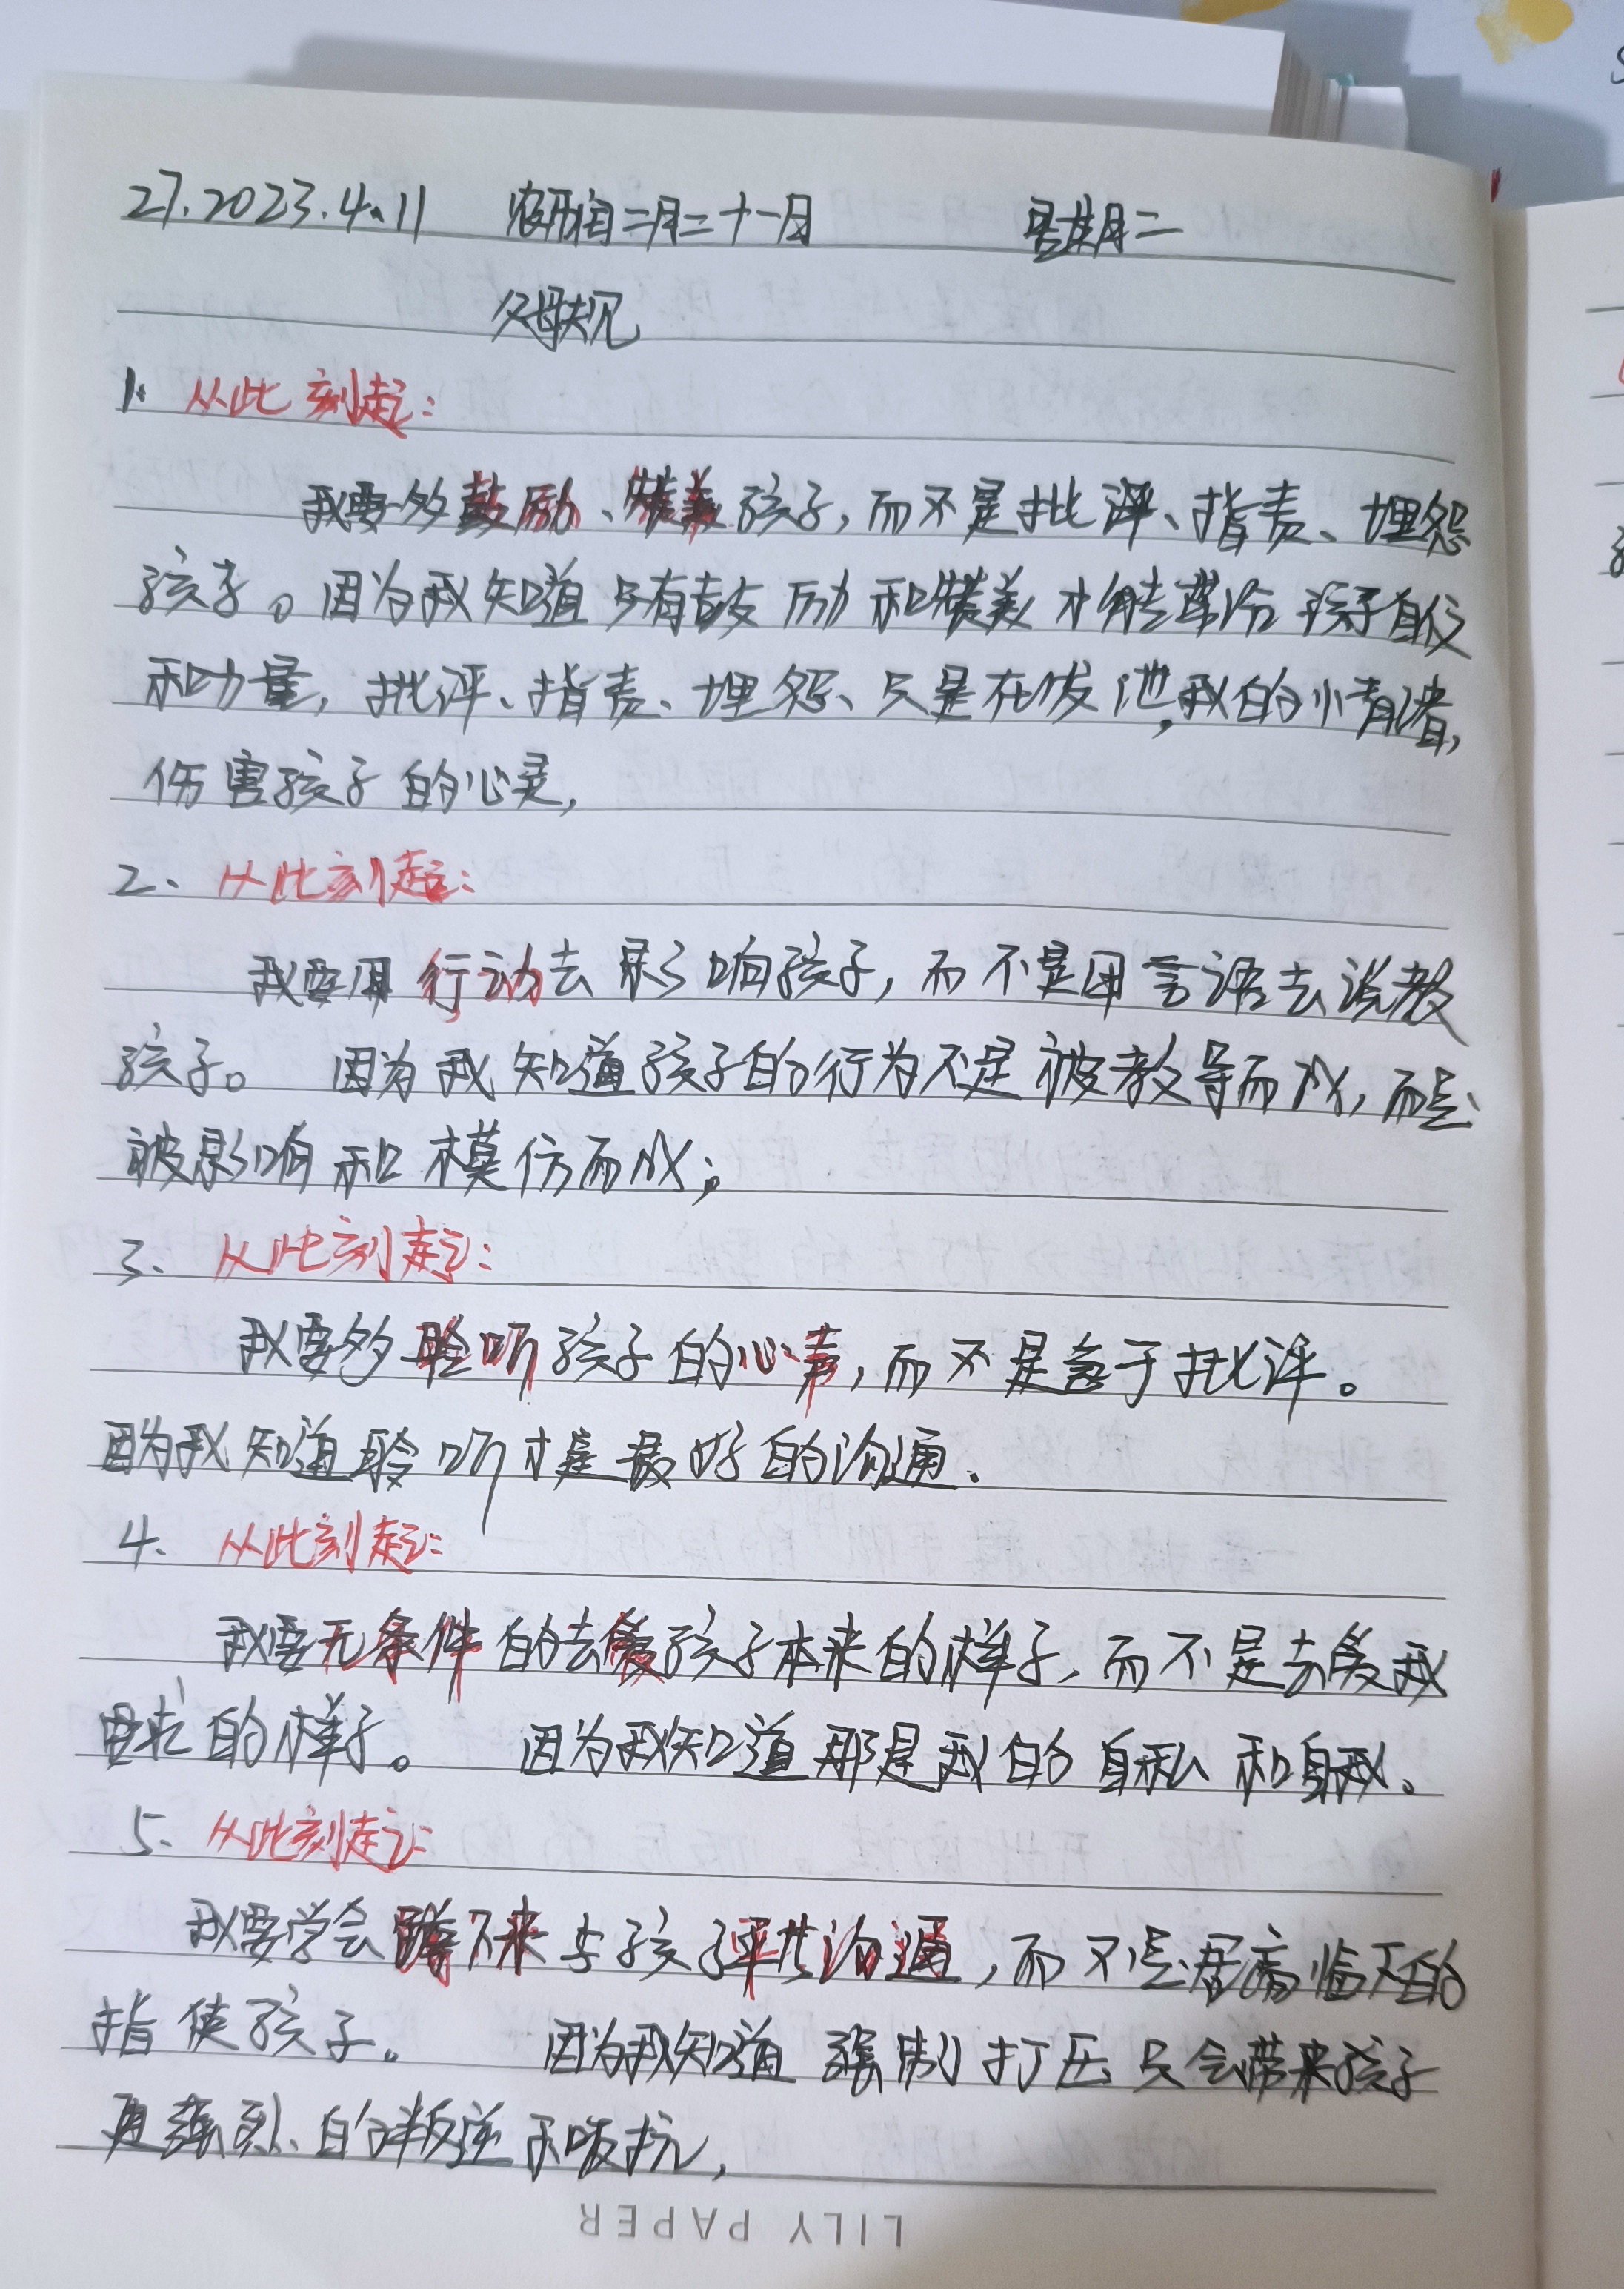 27.2023.4.11 农历闰二月二十一日 星期二
父母规
1. 从此刻起:
我要多鼓励、赞美孩子,而不是批评、指责、埋怨
孩子。因为我知道只有鼓励和赞美才能带给孩子自信
和力量,批评、指责、埋怨、只是在发泄,我的小情绪,
伤害孩子的心灵,
2、从此刻起:
我要用行动去影响孩子,而不是用言语去说教
孩子。 因为我知道孩子的行为不是被教导而成,而是
被影响和模仿而成;
3、从此刻起:
我要多聆听孩子的心声,而不是急于批评。
因为我知道聆听才是最好的沟通、
4、从此刻起:
我要无条件的去爱孩子本来的样子,而不是去爱我
要求的样子。 因为我知道那是我的自私和自我、
5、从此刻起:
我要学会蹲下来与孩子平等沟通,而不是居高临下的
指使孩子。 因为我知道强制打压只会带来孩子
更强烈的叛逆和反抗,
LILY PAPER